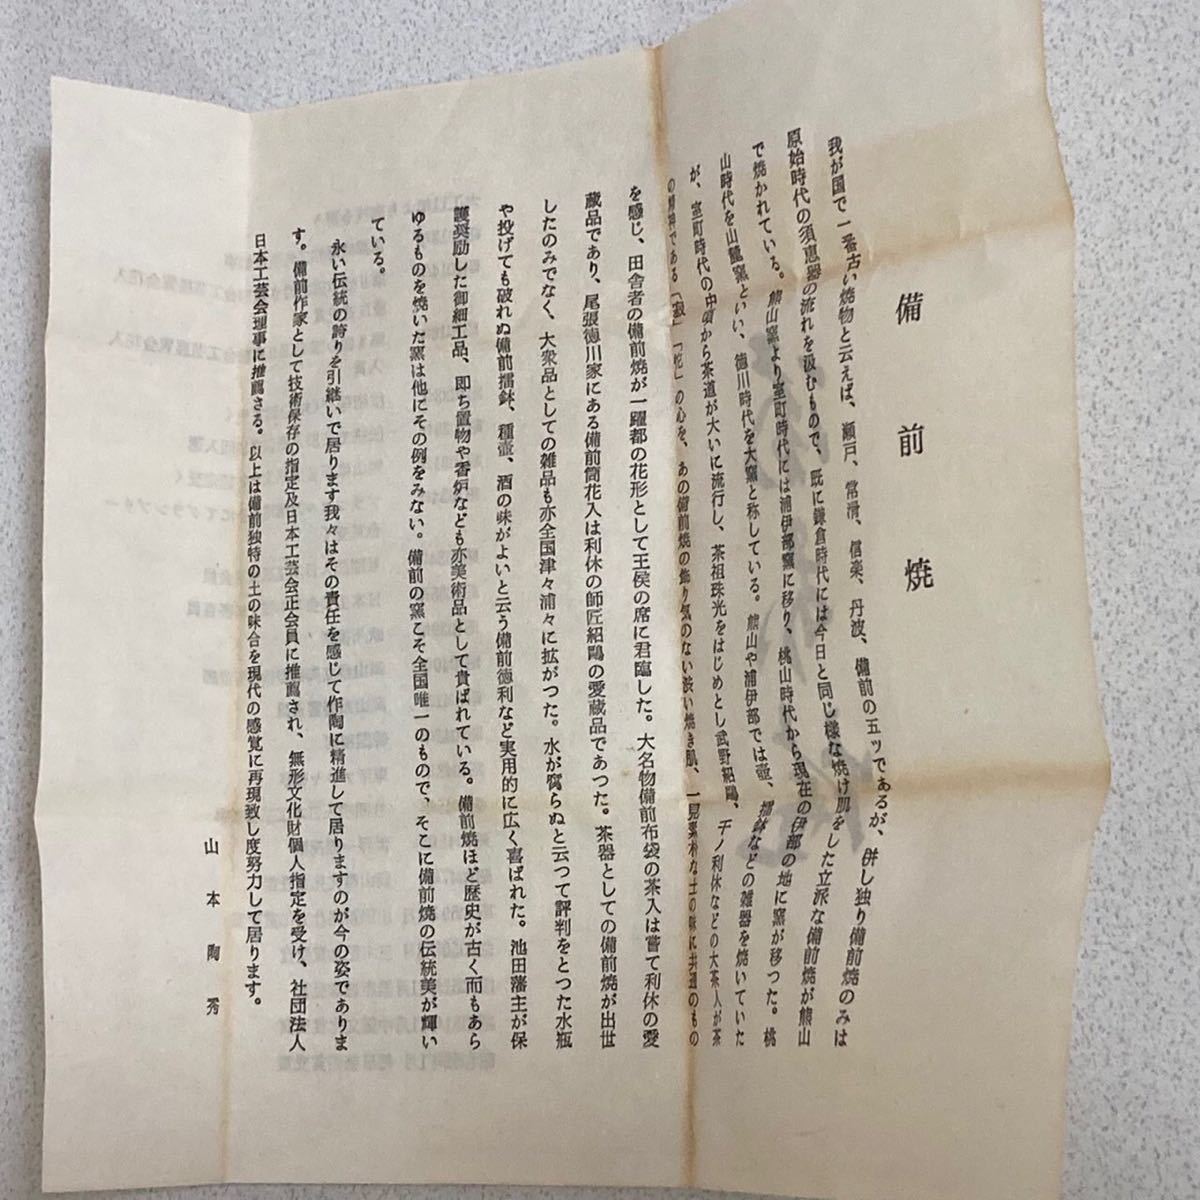 備前焼
我が国で一番古い焼物と云えば、瀬戸、常滑、信楽、丹波、備前の五ッであるが、併し独り備前焼のみは
原始時代の須恵器の流れを汲むもので、既に鎌倉時代には今日と同じ様な焼け肌をした立派な備前焼が熊山
で焼かれている。熊山窯より室町時代には浦伊部窯に移り、桃山時代から現在の伊部の地に窯が移つた。桃
山時代を山麓窯といい、徳川時代を大窯と称している。熊山や浦伊部では壺、擂鉢などの雑器を焼いていた
が、室町時代の中頃から茶道が大いに流行し、茶祖珠光をはじめとし武野紹鴎、千ノ利休などの大茶人が茶
の精神である「寂」「侘」の心を、あの備前焼の飾り気のない渋い焼き肌、一見素朴な土の味に共通のもの
を感じ、田舎者の備前焼が一躍都の花形として王侯の席に君臨した。大名物備前布袋の茶入は嘗て利休の愛
蔵品であり、尾張徳川家にある備前筒花入は利休の師匠紹鴎の愛蔵品であつた。茶器としての備前焼が出世
したのみでなく、大衆品としての雑品も亦全国津々浦々に拡がつた。水が腐らぬと云つて評判をとつた水瓶
や投げても破れぬ備前擂鉢、種壺、酒の味がよいと云う備前徳利など実用的に広く喜ばれた。池田藩主が保
護奨励した御細工品、即ち置物や香炉なども亦美術品として貴ばれている。備前焼ほど歴史が古く而もあら
ゆるものを焼いた窯は他にその例をみない。備前の窯こそ全国唯一のもので、そこに備前焼の伝統美が輝い
ている。
永い伝統の誇りを引継いで居ります我々はその責任を感じて作陶に精進して居りますのが今の姿でありま
す。備前作家として技術保存の指定及日本工芸会正会員に推薦され、無形文化財個人指定を受け、社団法人
日本工芸会理事に推薦さる。以上は備前独特の土の味合を現代の感覚に再現致し度努力して居ります。
山本陶秀